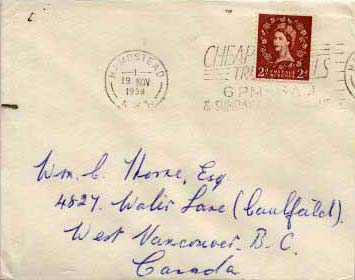 HAMPSTEAD
19 NOV
1958
CHEAP
6 PM
& SUNDAY
2d 2d
Wm. C. Thorne, Esq
4827. Water Lane (Caulfeild).
West Vancouver. B.C.
Canada.